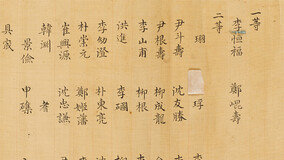 一等
李恒福 鄭崐壽
二等
珝 琈 李
尹斗壽 沈友勝
尹根壽 柳成龍 尹
李山甫 柳根
洪進 李
李幼澄 朴東亮
朴崇元 鄭姬藩
崔興源 沈忠謙 尹
韓淵
景儉 申磼
具宬